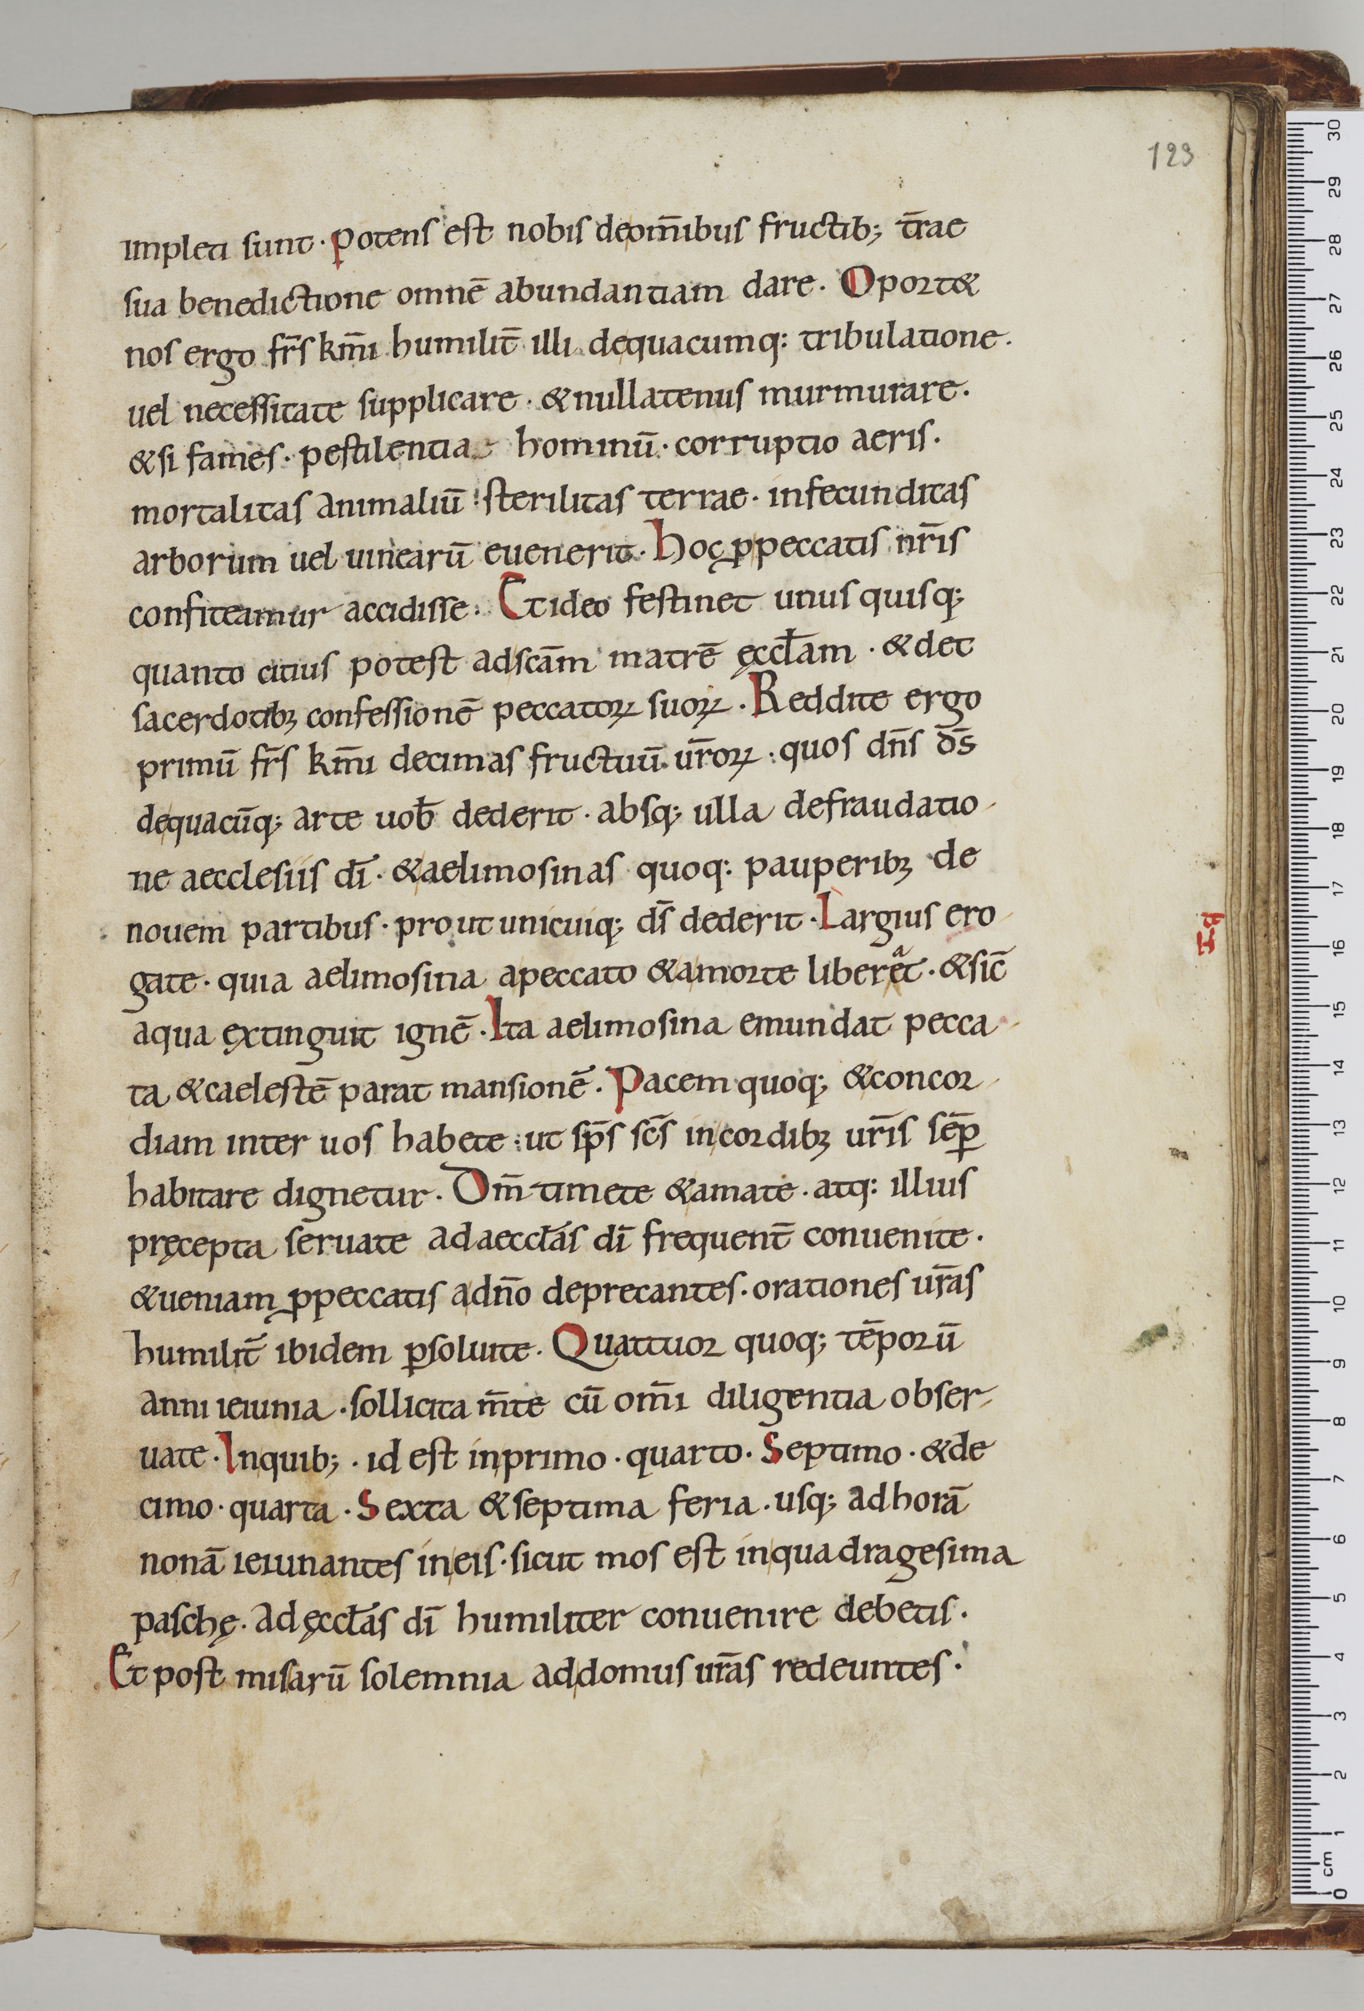 123
impleti sunt · Potens est nobis deom̄ibus fructib; t̄rae
sua benedictione omnē abundantiam dare. Oport&
nos ergo fr̄s km̄i humilit̄ illi dequacumq: tribulatione.
uel necessitate supplicare · &nullatenus murmurare.
&si fames · pestilentia hominū · corruptio aeris.
mortalitas animaliū sterilitas terrae · infecunditas
arborum uel uinearū euenerit · hoc ꝓpeccatis nr̄is
confiteamur accidisse. Et ideo festinet unus quisq;
quanto citius potest adscām matrē ęccƚam · &det
sacerdotibꝫ confessionē peccatoꝝ suoꝝ · Reddite ergo
primū fr̄s km̄i decimas fructuū ur̄oꝝ · quos dn̄s d̄s
dequacūq; arte uob̄ dederit · absq; ulla defraudatio-
ne aecclesiis dī · &aelimosinas quoq: pauperibꝫ de
nouem partibus · prout unicuiq; ds̄ dederit · Largius ero-
gate · quia aelimosina apeccato &amorte liberat · &sic̄
aqua extinguit ignē · Ita aelimosina emundat pecca-
ta &caelestē parat mansionē. Pacem quoq; &concor-
diam inter uos habete · ut sp̄s sc̄s incordibꝫ ur̄is sēꝑ
habitare dignetur. Dm̄ timete &amate · atq: illius
pręcepta seruate adaeccƚas dī frequent̄ conuenite.
&ueniam ꝓpeccatis adn̄o deprecantes. orationes ur̄as
humilit̄ ibidem ꝑsoluite. Quattuor quoq; tēporū
anni ieiunia · sollicita m̄te cū om̄i diligentia obser-
uate · Inquib; · id est inprimo · quarto · Septimo · &de
cimo · quarta · Sexta &septima feria · usq; adhorā
nonā ieiunantes ineis · sicut mos est inquadragesima
paschę. adęccƚas dī humiliter conuenire debetis.
Et post misarū solemnia addomus ur̄as redeuntes.
30
29
28
27
26
25
24
23
22
21
20
19
18
17
16
15
14
13
12
11
10
9
8
7
6
5
4
3
2
1
cm
0